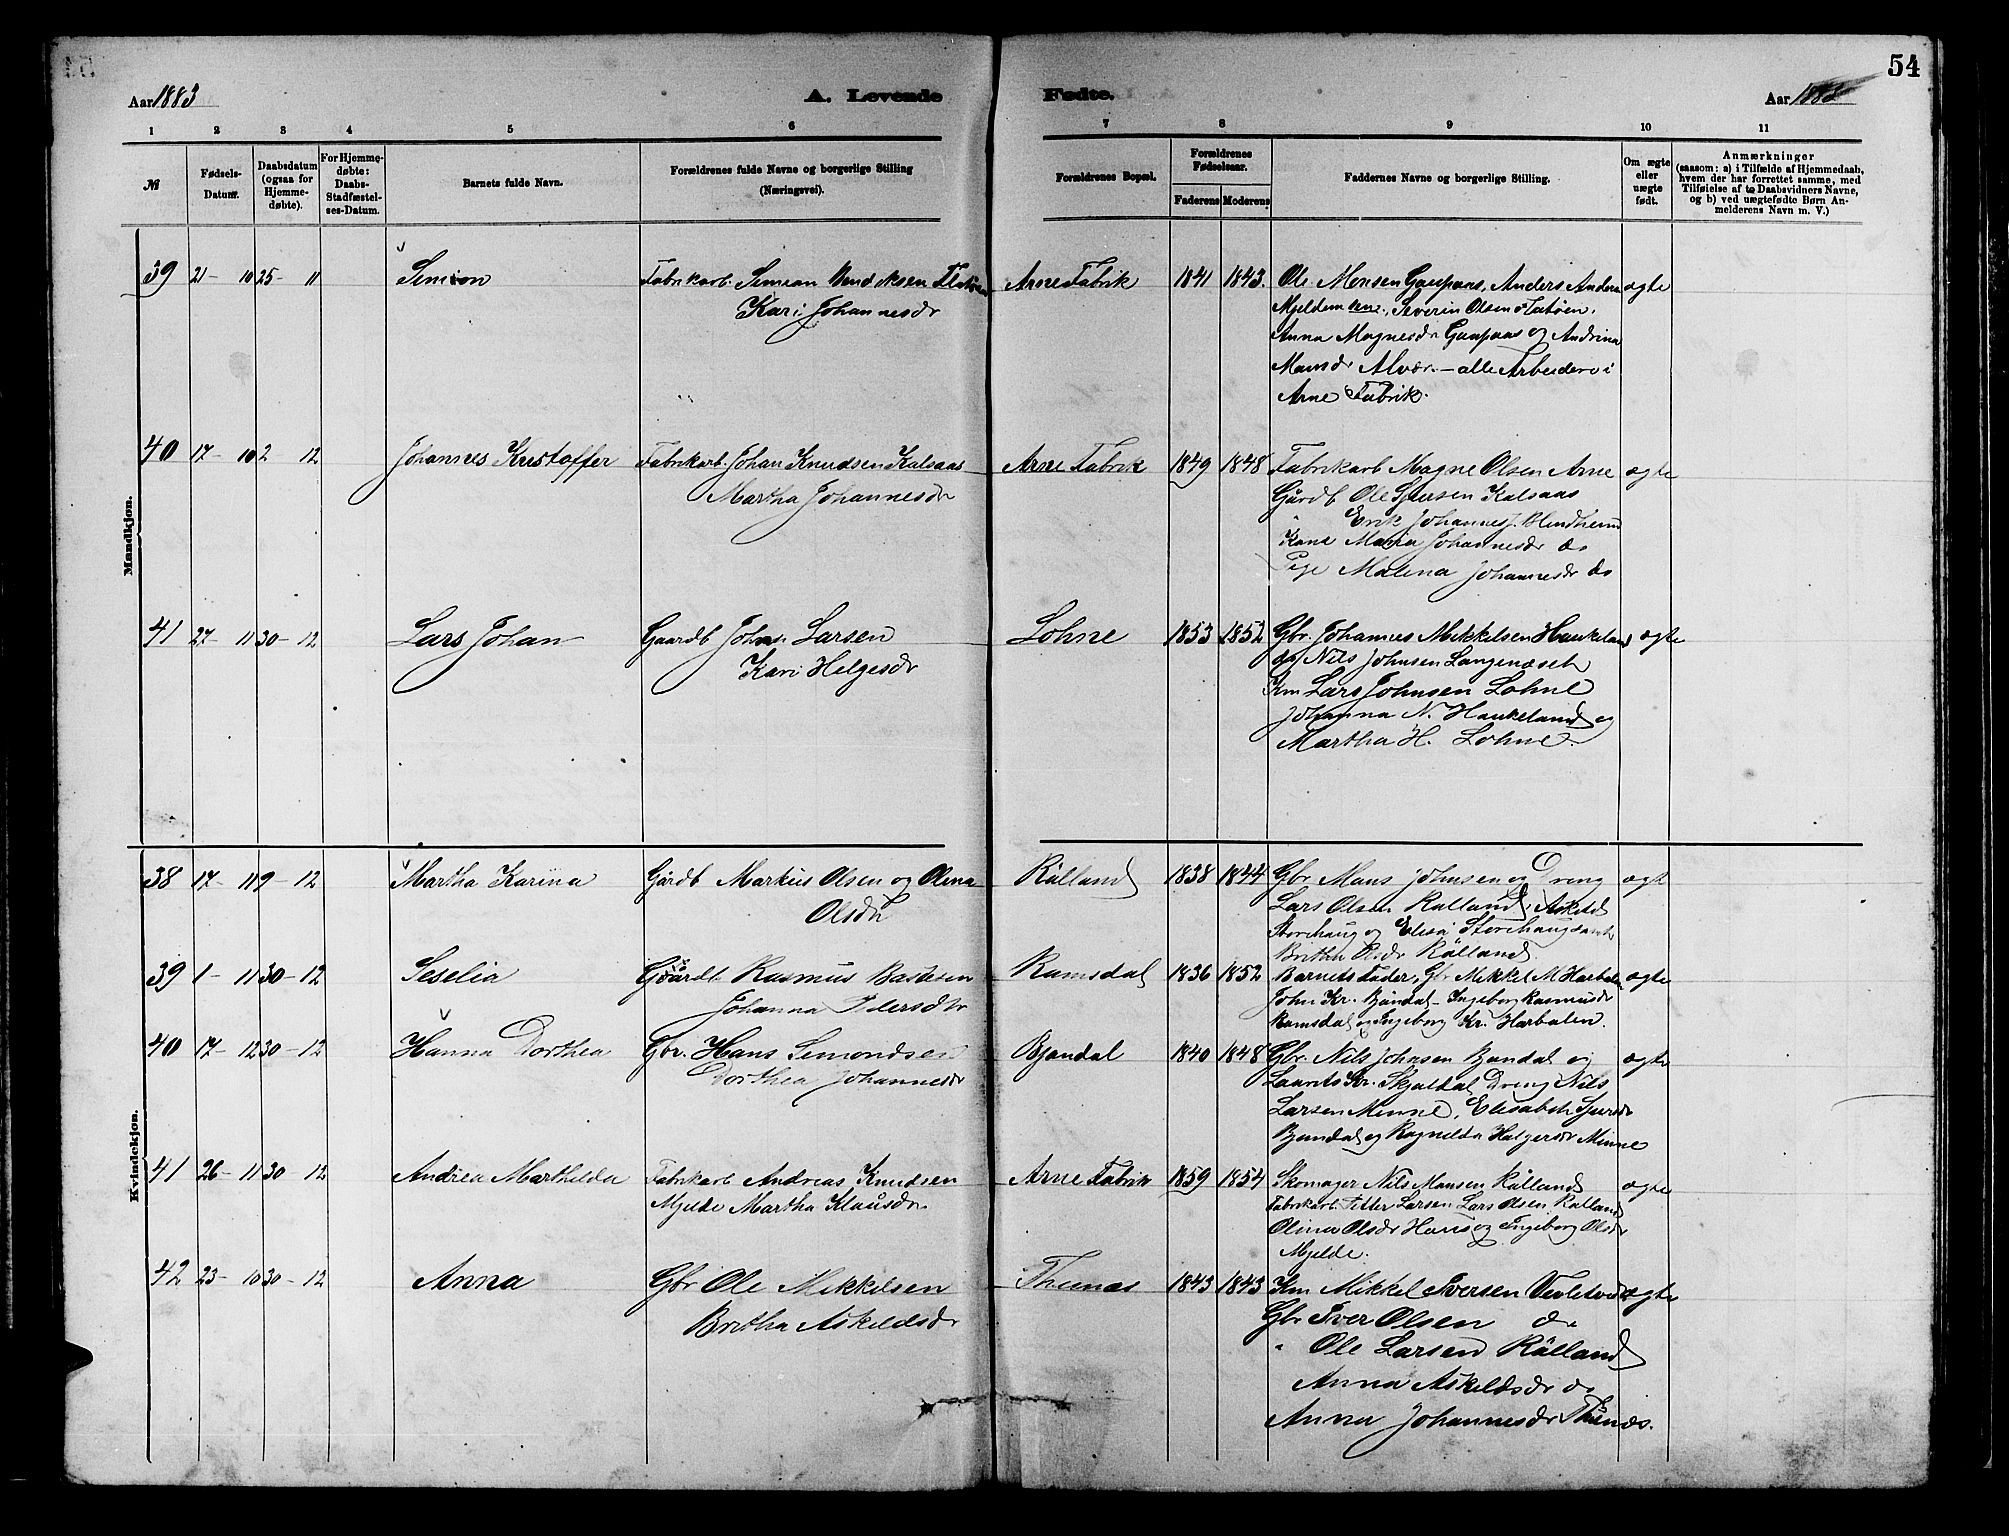 54
Aar 1883 A. Levende Fødte. Aar 1883
1 2 3 4 5 6 7 8 9 10 11
№
Fødsels-Datum.
Daabsdatum (ogsaa for Hjemmedøbte).
For Hjemmedøbte: Daabs-Stadfæstelses-Datum.
Barnets fulde Navn.
Forældrenes fulde Navne og borgerlige Stilling (Næringsvei).
Forældrenes Bopæl.
Forældrenes Fødselsaar.
Faderens Moderens
Faddernes Navne og borgerlige Stilling.
Om ægte eller uægte født.
Anmærkninger
(saasom: a) i Tilfælde af Hjemmedaab, hvem der har forrettet samme, med Tilføielse af to Daabsvidners Navne, og b) ved uægtefødte Børn Anmelderens Navn m. V.)
Mandkjøn.
39 21-10 25-11 Simion Fabrikarb. Simean Bendiksen Arne Fabrik 1841 1843. Ole Monsen Gaupaas, Anders Anders ægte
Kari Johannesdr Mjeldem Severin Olsen Flatøen,
Anna Magnesdr Gaupaas og Andrina
Mansdr Alvær. - alle Arbeidere i
Arne Fabrik.
40 17-10 2 12 Johannes Kristoffer Fabrikarb. Johan Knudsen Kalsaas Arne Fabrik 1849 1848 Fabrikarb Magne Olsen Arne ægte
Martha Johannesdr Gårdb Ole Sjursen Kalsaas
" Erik Johannes. Blindheim
Kone Maria Johannesdr do
Pige Malena Johannesdr do
41 27-11 30-12 Lars Johan Gaardb Johs. Larsen Lohne 1853 1852 Gbr. Johannes Mikkelsen Haukeland ægte
Kari Helgesdr do Nils Johnsen Langenæset
Km Lars Johnsen Lohne
Johanna N. Haukeland og
Martha H. Lohne.
Kvindekjøn.
38 17-11 9-12 Martha Karina Gårdb Markus Olsen og Olina Rålland 1838 1844 Gbr Mans Johnsen og Dreng ægt
Olsdtr Lars Olsen Rålland, Askild
Storehaug og Elisa Storehaug samt
Britha Rålland
39 1-11 30-12 Seselia Gaardb Rasmus Bastesen Ramsdal 1836 1852 Barnets Fader, Gbr Mikkel M Harbalen ægte
Johanna Petersdtr John Kr. Bjåndal - Ingeborg Rasmusdr
Ramsdal og Ingeborg Kr. Harbalen.
40 17-12 30-12 Hanna Dorthea Gbr. Hans Simondsen Bjandal 1840 1848 Gbr. Nils Johnsen Bjandal og ægte
Dorthea Johannesdr Laurits Kr. Skjeldal Dreng Nils
Larsen Minne, Elisabeth Sjursdr
Bjandal og Ragnilda Halgersdr Minne
41 26-11 30-12 Andrea Marthilda Fabrikarb Andreas Knudsen Arne Fabrik 1859 1854 Skomager Nils Mansen Rålland ægte
Mjelde Martha Klausdr Fabrikarb. Petter Larsen Lars Olsen Rålland
Olina Olsdr og Ingeborg Olsdr
Mjelde.
42 23-10 30-12 Anna Gbr Ole Mikkelsen Thunæs 1843 1843 Km Mikkel Iversen Vevletveit ægte
Britha Askeldsdr Gbr Iver Olsen do
" Ole Larsen Rålland
Anna Askeldsdr do
Anna Johannesdr Thunæs.